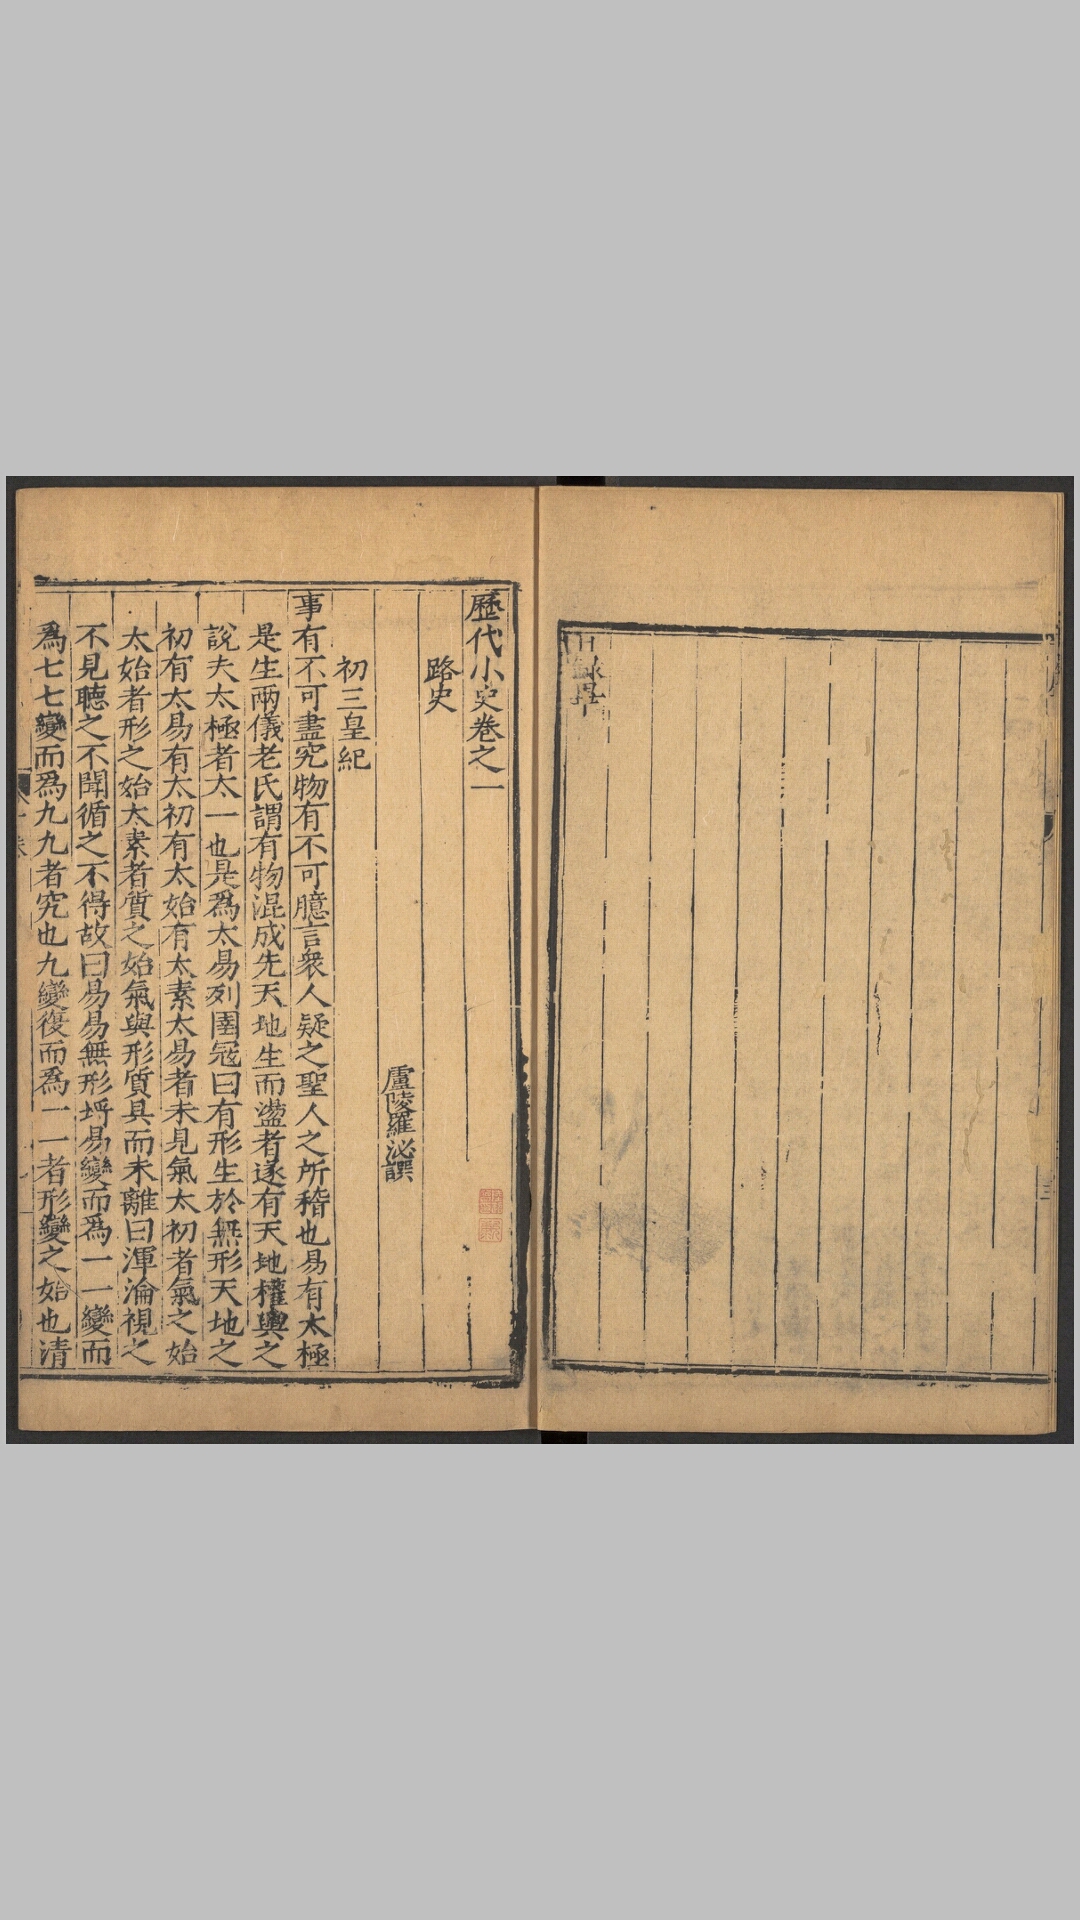 目録畢
歷代小史卷之一
路史
盧陵羅泌譔
初三皇紀
事有不可盡究物有不可臆言衆人疑之聖人之所稽也易有太極
是生兩儀老氏謂有物混成先天地生而盪者遂有天地權輿之
說夫太極者太一也是爲太易列圄冦曰有形生於無形天地之
初有太易有太初有太始有太素太易者未見氣太初者氣之始
太始者形之始太素者質之始氣與形質具而未離曰渾淪視之
不見聽之不聞循之不得故曰易易無形埒易變而爲一一變而
爲七七變而爲九九者究也九變復而爲一一者形變之始也清